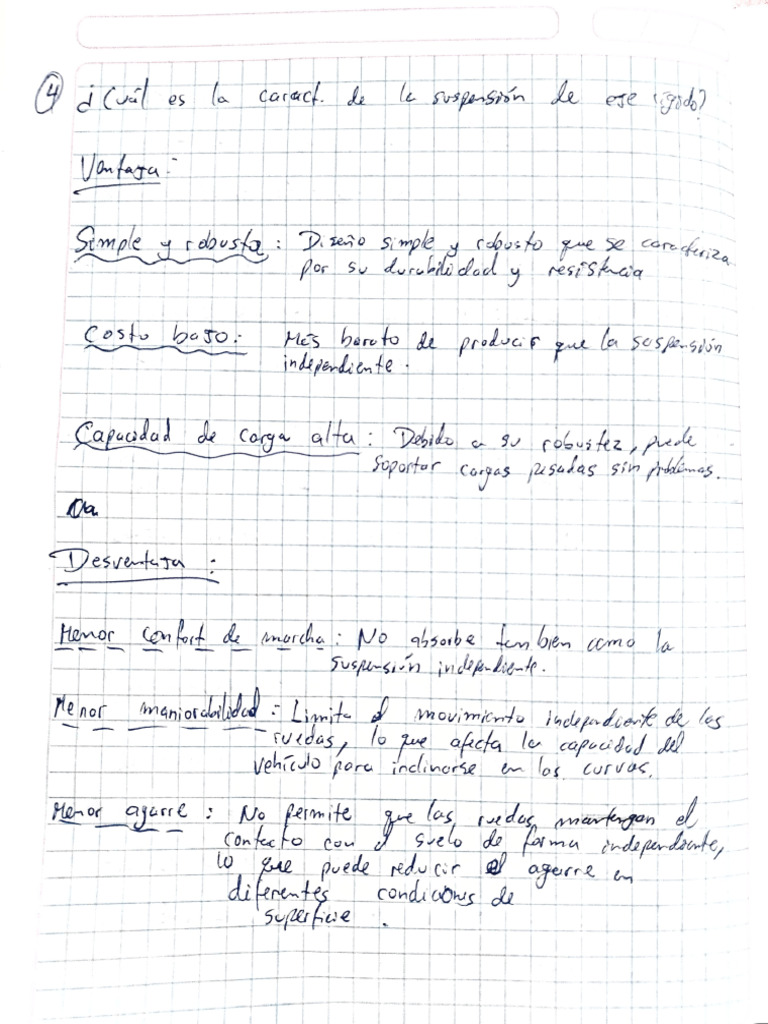 4 ¿Cuál es la caract. de la suspensión de eje rígido?
Ventaja:
Simple y robusta: Diseño simple y robusto que se caracteriza
por su durabilidad y resistencia
Costo bajo: Más barato de producir que la suspensión
independiente.
Capacidad de carga alta: Debido a su robustez, puede
soportar cargas pesadas sin problemas.
Desventaja:
Menor confort de marcha: No absorbe tan bien como la
suspensión independiente.
Menor maniorabilidad: Limita el movimiento independiente de las
ruedas, lo que afecta la capacidad del
vehículo para inclinarse en las curvas.
Menor agarre: No permite que las ruedas mantengan el
contacto con el suelo de forma independiente,
lo que puede reducir el agarre en
diferentes condiciones de
superficie.